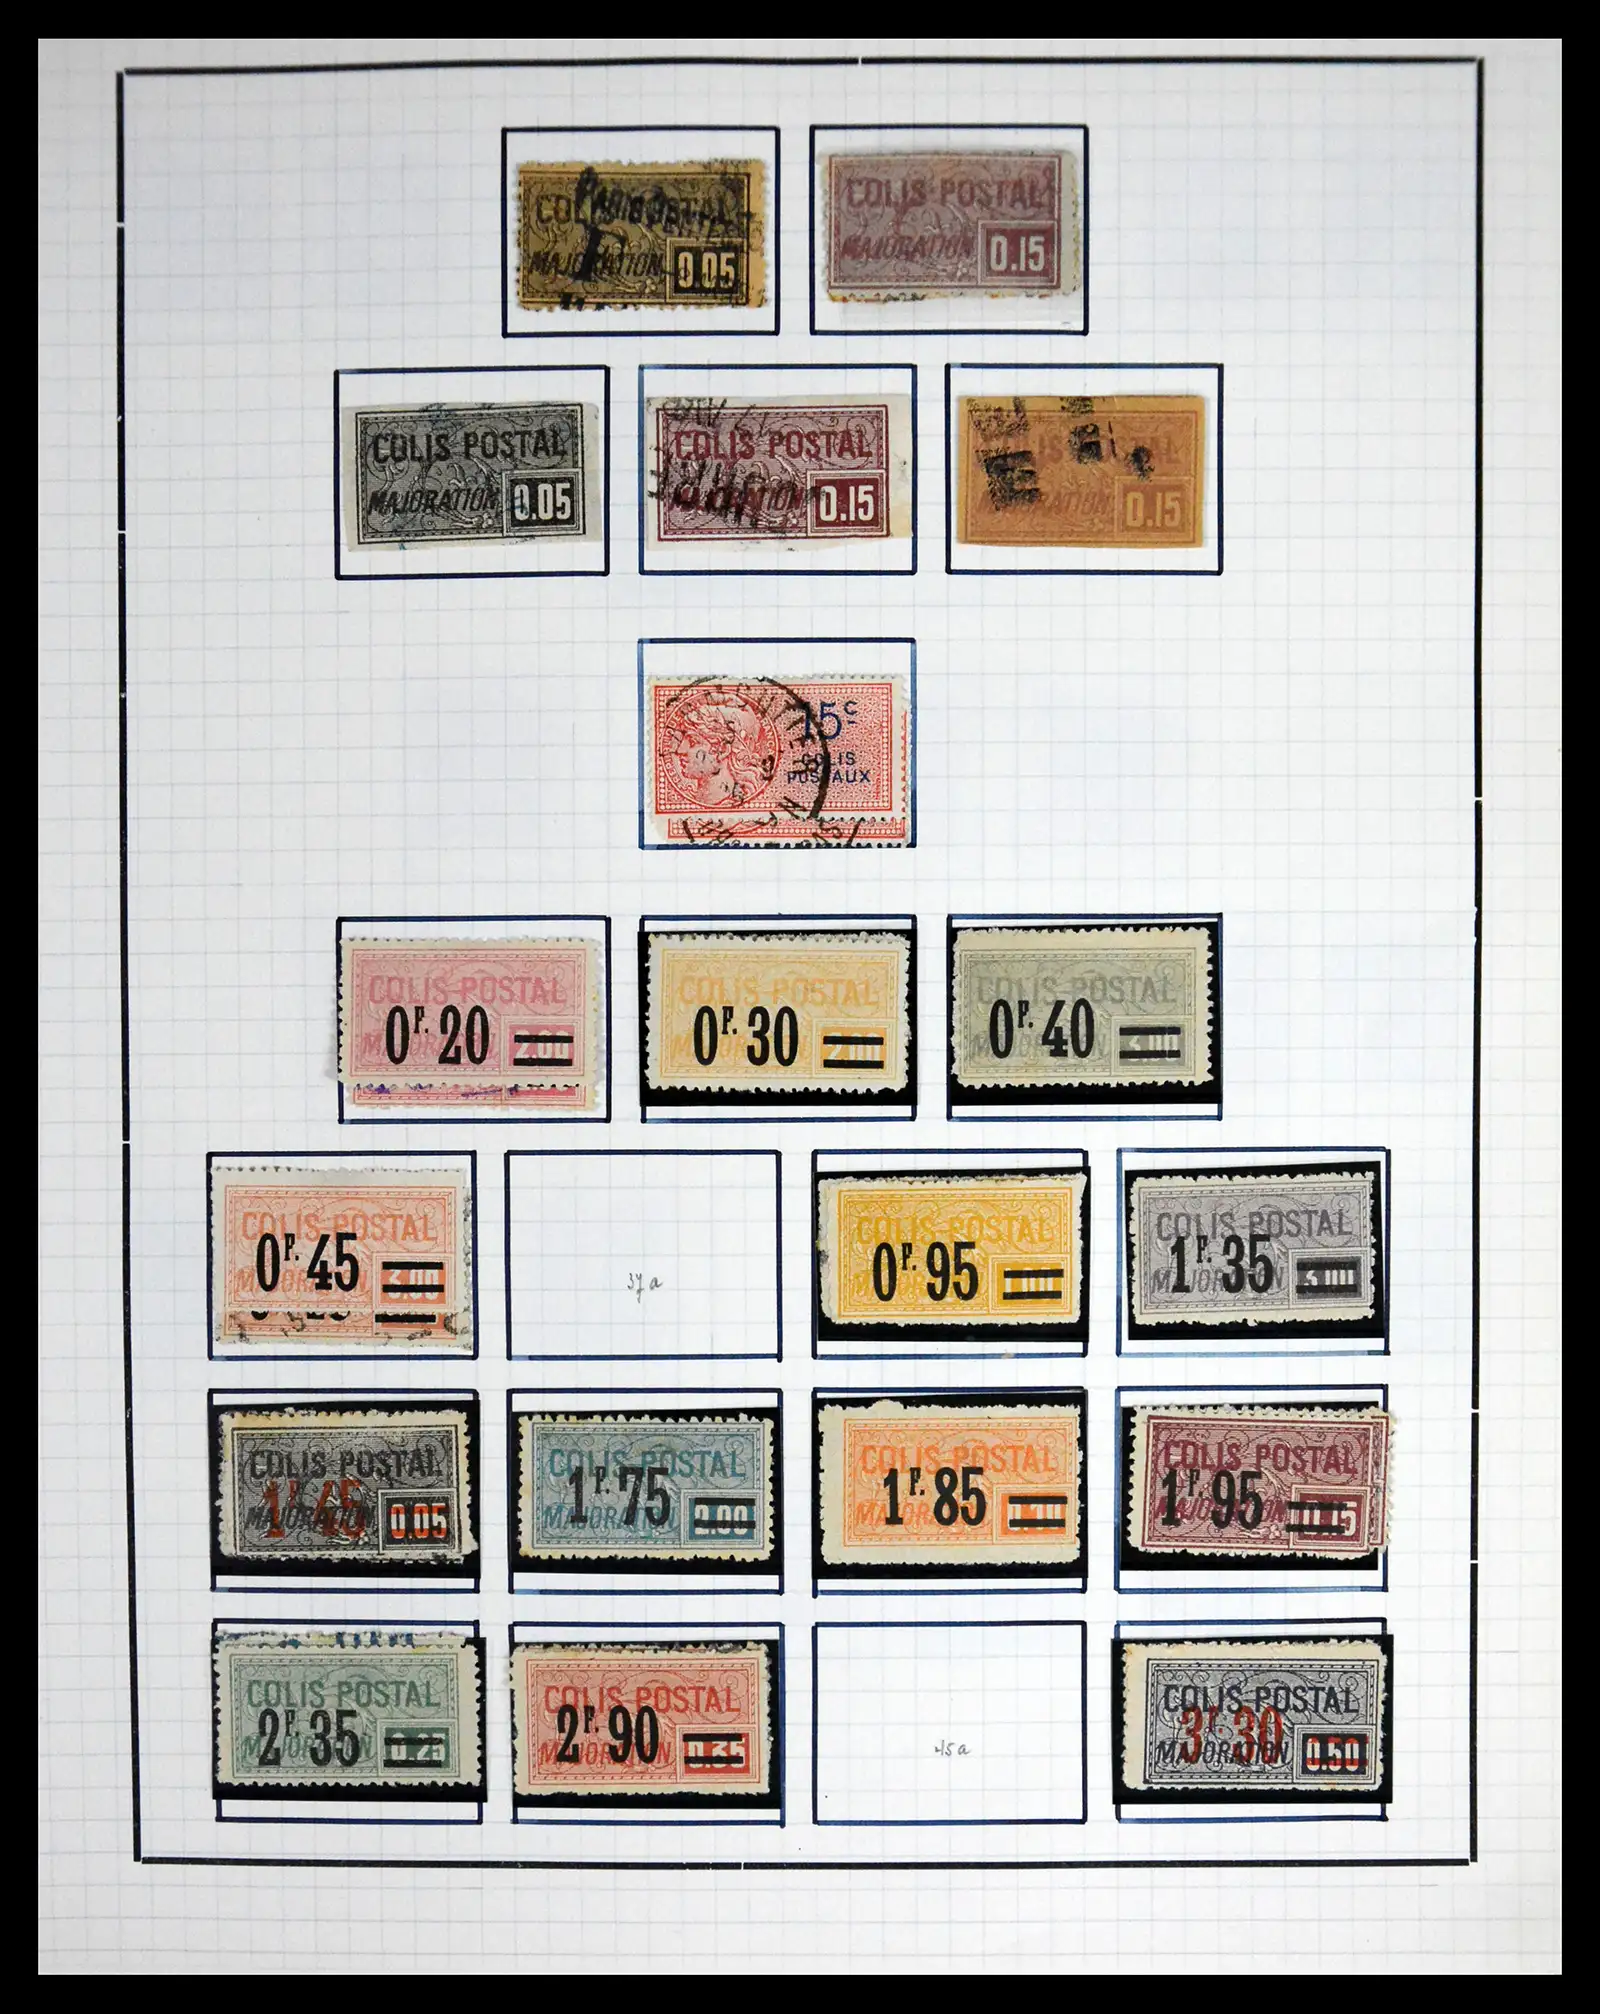 COLIS POSTAL
MAJORATION
0.05
COLIS POSTAL
MAJORATION
0.15
COLIS POSTAL
MAJORATION
0.05
COLIS POSTAL
MAJORATION
0.15
MAJORATION
0.15
15c
COLIS
POSTAUX
COLIS POSTAL
0F. 20
2.00
COLIS POSTAL
0F. 30
2.00
COLIS POSTAL
0F. 40
3.00
COLIS POSTAL
0F. 45
3.00
37a
COLIS POSTAL
0F. 95
COLIS POSTAL
1F. 35
MAJORATION
3.00
COLIS POSTAL
1F. 45
MAJORATION
0.05
COLIS POSTAL
1F. 75
MAJORATION
2.00
COLIS POSTAL
1F. 85
MAJORATION
COLIS POSTAL
1F. 95
MAJORATION
0.15
COLIS POSTAL
2F. 35
MAJORATION
0.25
COLIS POSTAL
2F. 90
MAJORATION
0.35
45a
COLIS POSTAL
3F. 30
MAJORATION
0.50